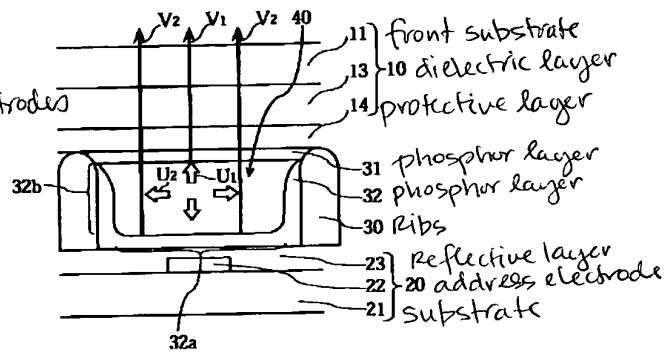 V2 V1 V2 40
11 front substrate
10 dielectric layer
13
trodes
14 protective layer
31 phosphor layer
32b U2 U1 32 phosphor layer
30 Ribs
23 Reflective layer
22 20 address electrode
21 substrate
32a